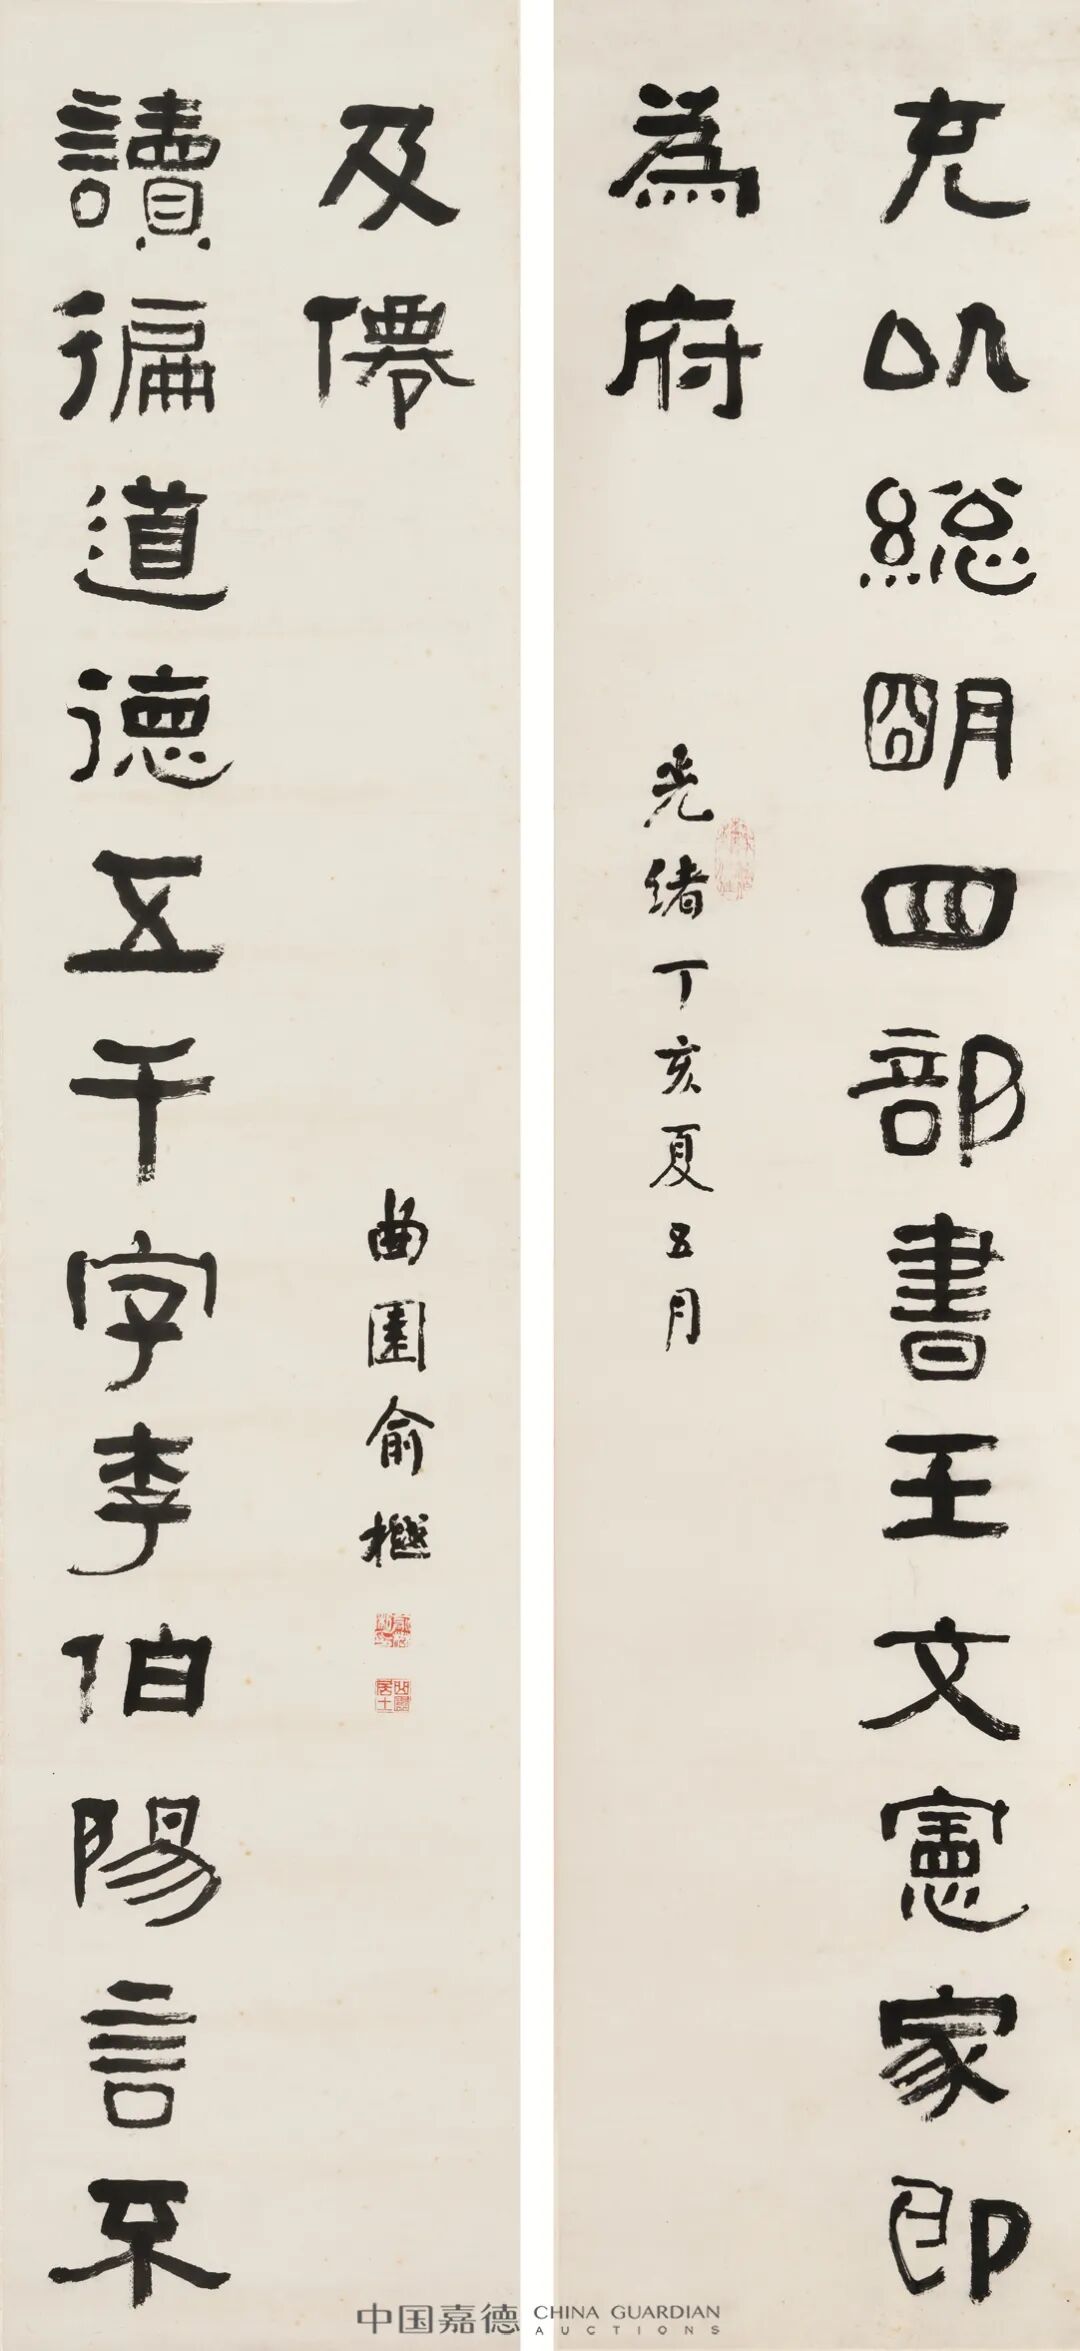 充以総朙四部書王文憲家即
為府
光緒丁亥夏五月
讀徧道德五千字李伯陽言不
及僊
曲園俞樾
曲園居士
中国嘉德 CHINA GUARDIAN
AUCTIONS